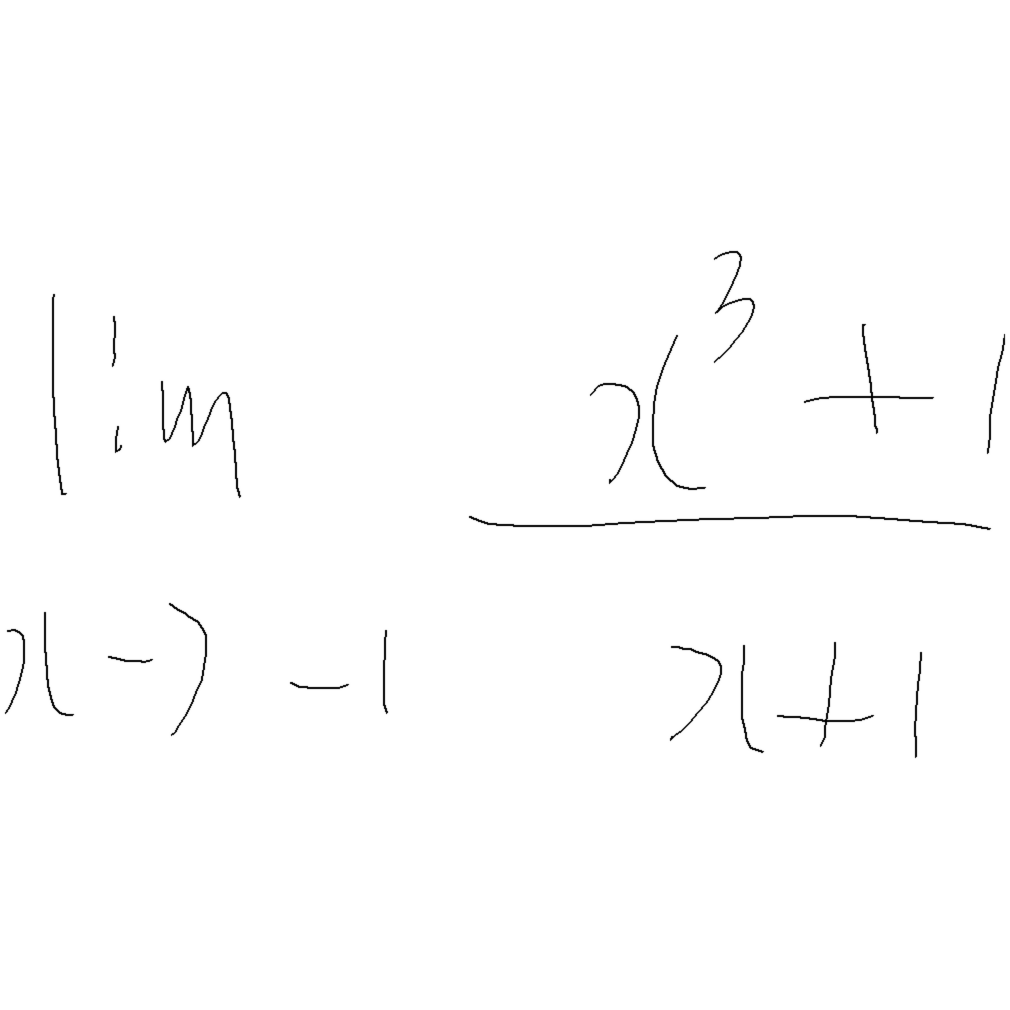 lim x³ + 1
x -> -1 x + 1